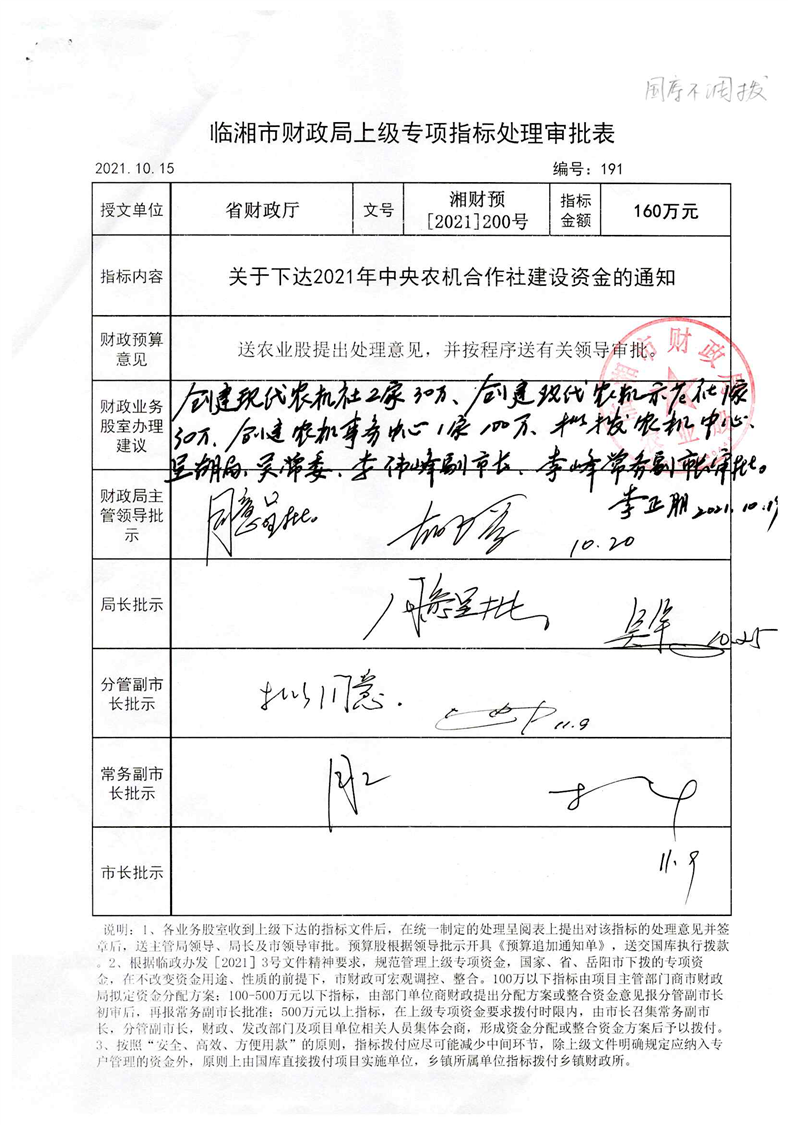 国库不调拨
临湘市财政局上级专项指标处理审批表
2021.10.15 编号：191
授文单位 省财政厅 文号 湘财预[2021]200号 指标金额 160万元
指标内容 关于下达2021年中央农机合作社建设资金的通知
财政预算意见 送农业股提出处理意见，并按程序送有关领导审批。
财政业务股室办理建议
创建现代农机社2家30万、创建现代农机示范社1家
30万、创建农机事务中心1家100万、拟拨农机中心、
呈胡局、吴常委、李伟峰副市长、李峰常务副市长审批。
李正朋 2021.10.19
财政局主管领导批示 同意呈批。 10.20
局长批示 同意呈批 10.25
分管副市长批示 拟同意. 11.9
常务副市长批示 同意
11.9
市长批示
说明：1、各业务股室收到上级下达的指标文件后，在统一制定的处理呈阅表上提出对该指标的处理意见并签
章后，送主管局领导、局长及市领导审批。预算股根据领导批示开具《预算追加通知单》，送交国库执行拨款
。2、根据临政办发［2021］3号文件精神要求，规范管理上级专项资金，国家、省、岳阳市下拨的专项资
金，在不改变资金用途、性质的前提下，市财政可宏观调控、整合。100万以下指标由项目主管部门商市财政
局拟定资金分配方案；100-500万元以下指标，由部门单位商财政提出分配方案或整合资金意见报分管副市长
初审后，再报常务副市长批准；500万元以上指标，在上级专项资金要求拨付时限内，由市长召集常务副市
长，分管副市长，财政、发改部门及项目单位相关人员集体会商，形成资金分配或整合资金方案后予以拨付。
3、按照“安全、高效、方便用款”的原则，指标拨付应尽可能减少中间环节，除上级文件明确规定应纳入专
户管理的资金外，原则上由国库直接拨付项目实施单位，乡镇所属单位指标拨付乡镇财政所。